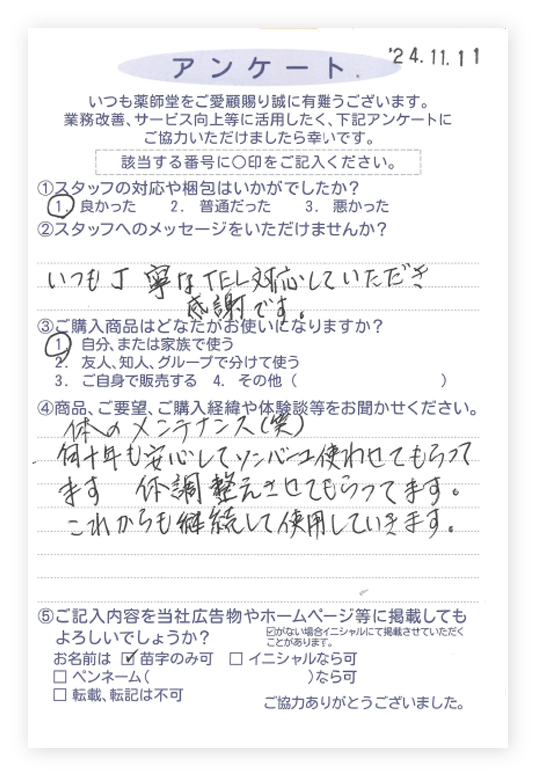 '24.11.11
アンケート
いつも薬師堂をご愛顧賜り誠に有難うございます。
業務改善、サービス向上等に活用したく、下記アンケートに
ご協力いただけましたら幸いです。
該当する番号に〇印をご記入ください。
①スタッフの対応や梱包はいかがでしたか?
1. 良かった 2. 普通だった 3. 悪かった
②スタッフへのメッセージをいただけませんか?
いつも丁寧なTEL対応していただき
感謝です。
③ご購入商品はどなたがお使いになりますか?
1. 自分、または家族で使う
2. 友人、知人、グループで分けて使う
3. ご自身で販売する 4. その他( )
④商品、ご要望、ご購入経緯や体験談等をお聞かせください。
体のメンテナンス(笑)
何十年も安心してソンバーユ使わせてもらって
ます 体調整えさせてもらってます。
これからも継続して使用していきます。
⑤ご記入内容を当社広告物やホームページ等に掲載しても
よろしいでしょうか?
☑がない場合イニシャルにて掲載させていただく
ことがあります。
お名前は ☑ 苗字のみ可 □ イニシャルなら可
□ ペンネーム( )なら可
□ 転載、転記は不可
ご協力ありがとうございました。